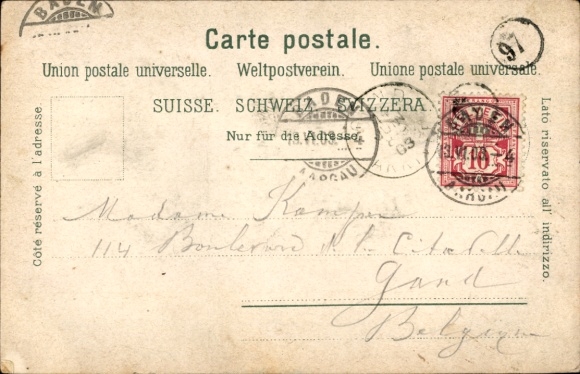 BADEN
Carte postale.
97
Union postale universelle. Weltpostverein. Unione postale universale.
SUISSE. SCHWEIZ. SVIZZERA.
Nur für die Adresse.
BADEN
AARGAU
BADEN
10
AARGAU
Côté réservé à l'adresse.
Lato riservato all' indirizzo.
Madame
114 Boulevard de la Citadelle
Gand
Belgique